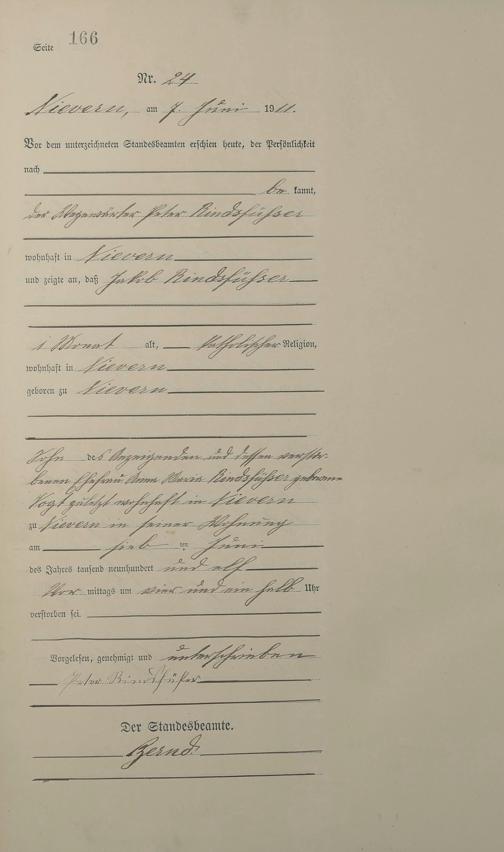 Seite 166
Nr. 24
Nievern, am 7. Juni 1911.
Vor dem unterzeichneten Standesbeamten erschien heute, der Persönlichkeit
nach
be kannt,
der Wegewärter Peter Rindsfüßer
wohnhaft in Nievern
und zeigte an, daß Jakob Rindsfüßer
1 Monat alt, katholischer Religion,
wohnhaft in Nievern
geboren zu Nievern
Sohn des Anzeigenden und dessen verstor-
benen Ehefrau Anna Maria Rindsfüßer geborene
Vogt zuletzt wohnhaft in Nievern
zu Nievern in seiner Wohnung
am sieb ten Juni
des Jahres tausend neunhundert und elf
Vor mittags um vier und ein halb Uhr
verstorben sei.
Vorgelesen, genehmigt und unterschrieben
Peter Rindsfüßer
Der Standesbeamte.
Bernd